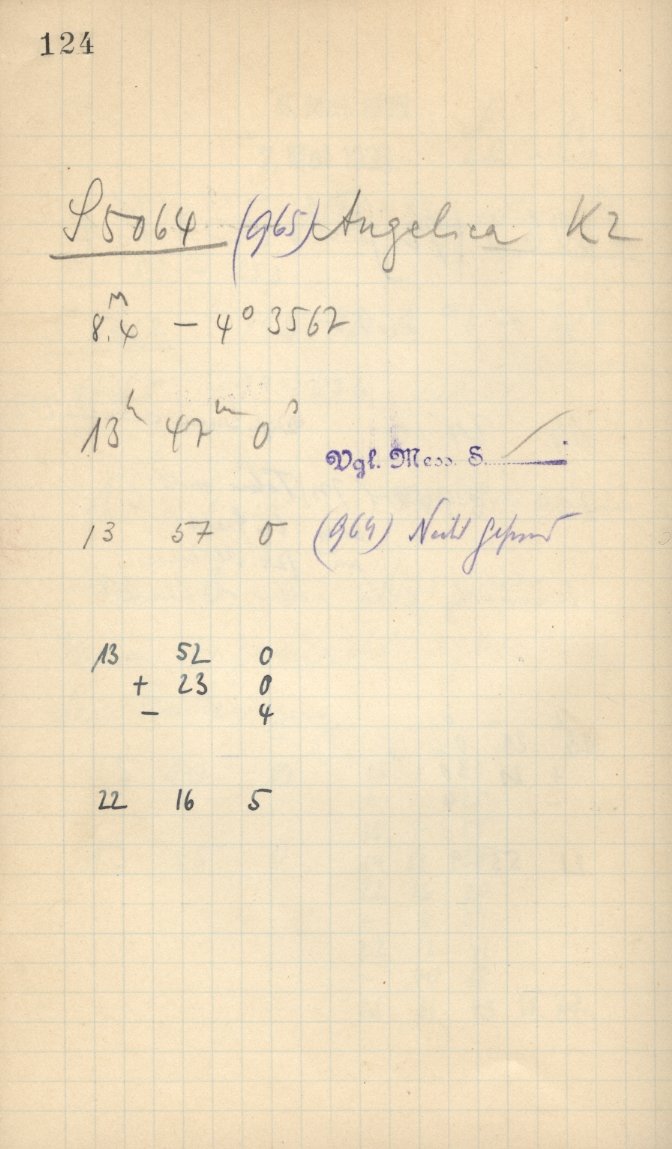 124
S 5064 (965) Angelica K2
8.4ᵐ − 4° 3562
13ʰ 47ᵐ 0ˢ
Vgl. Mess. S.
13 57 0 (964)
13 52 0
+ 23 0
− 4
22 16 5